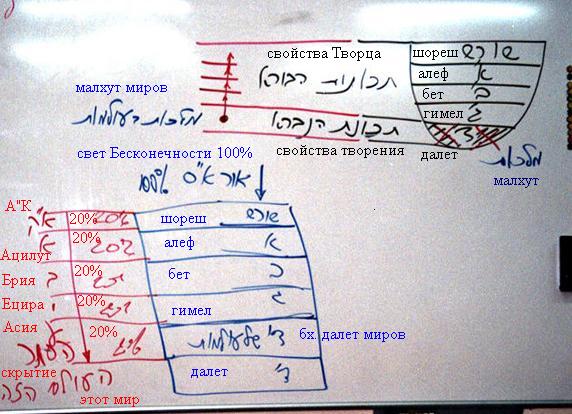 свойства Творца
תכונות הבורא
малхут миров
מלכות העולמות
תכונת הנברא
свойства творения
шореш שורש
алеф א
бет ב
гимел ג
далет ד'
מלכות
малхут
свет Бесконечности 100%
100% אור א"ס
А"К א"ק 20% 20% шореш שורש
א 20% 20% алеф א
Ацилут
Брия ב 20% бет ב
Ецира 20% гимел ג
Асия 20% ד' של עולמות бх. далет миров
скрытие далет ד'
העולם הזה
этот мир